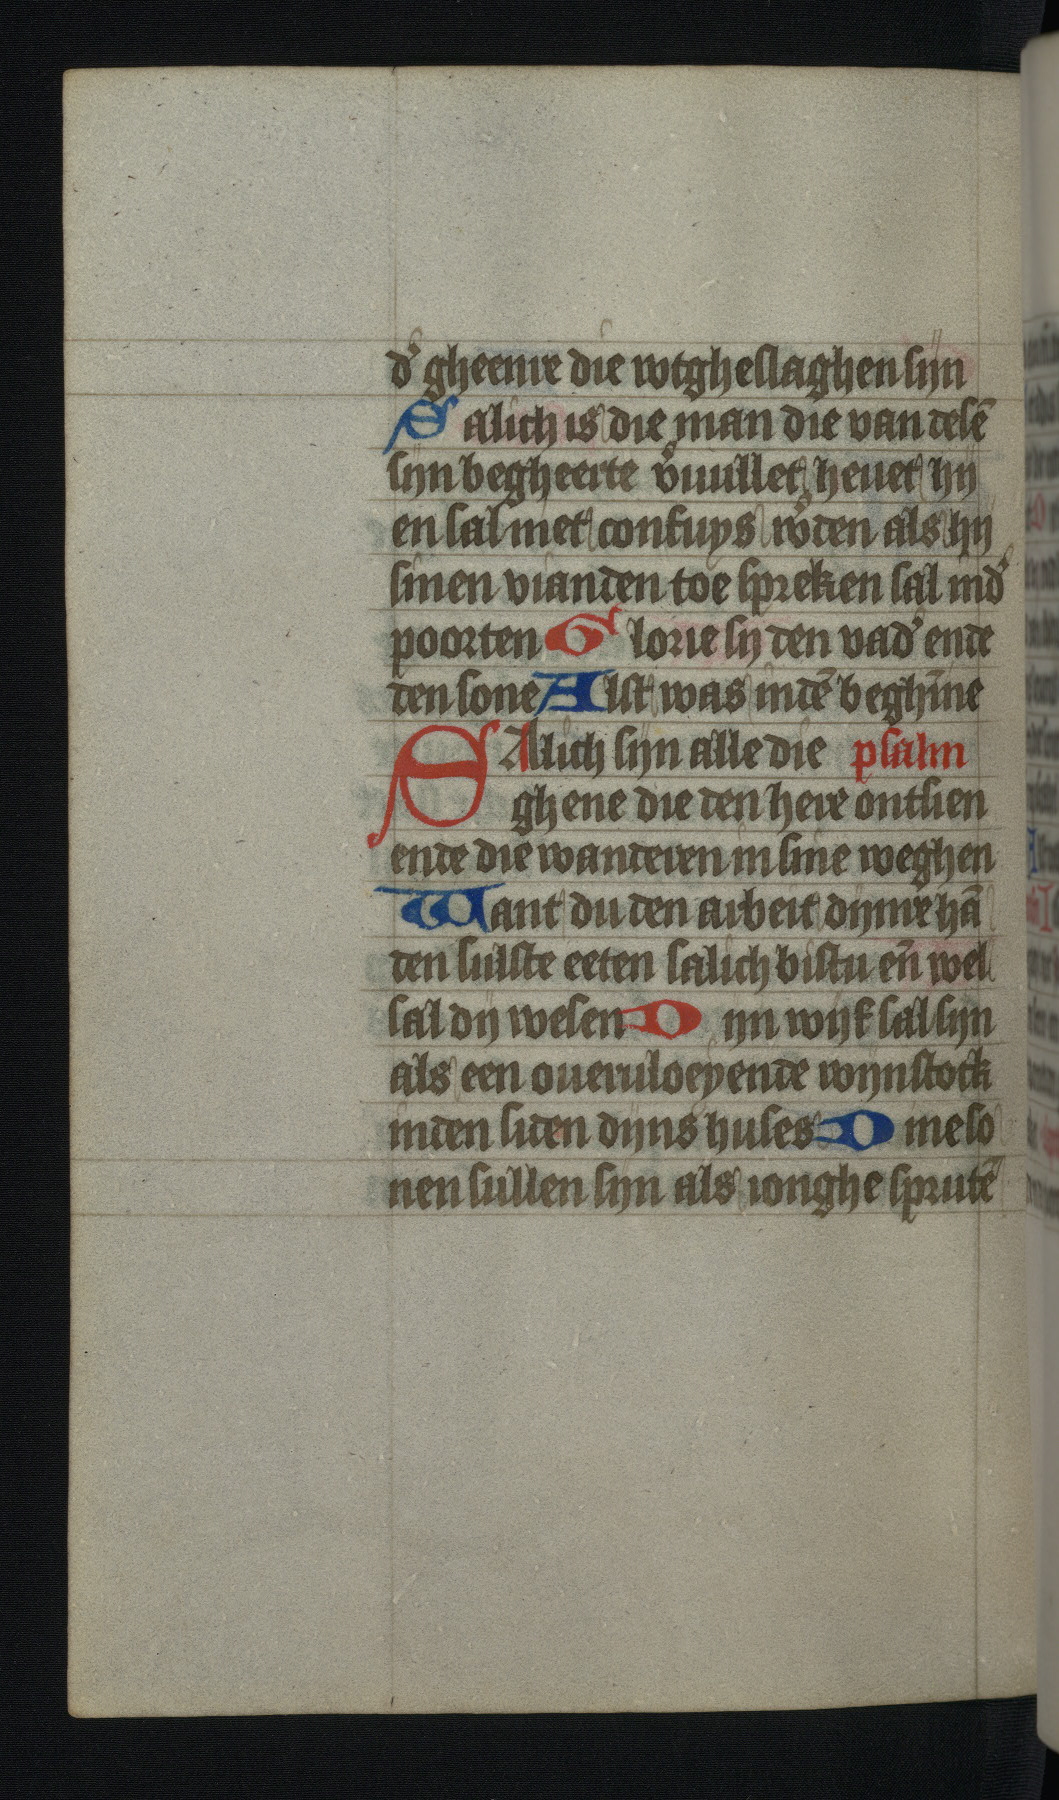 d' gheenre die wtgheslaghen sijn
Salich is die man die van desē
sijn begheerte v'uullet heuet hij
en sal niet confuys w'den als hij
sinen vianden toe spreken sal ind'
poorten Glorie sy den vad' ende
den sone Alst was indē beghīne
SAlich sijn alle die psalm
ghene die den here ontsien
ende die wanderen in sine weghen
Want du den arbeit dijnre hā
den sulste eeten salich bistu eñ wel
sal dij wesen Dijn wijf sal sijn
als een oueruloeyende wijnstock
inden siden dijns huses Dine so
nen sullen sijn als ionghe sprutē